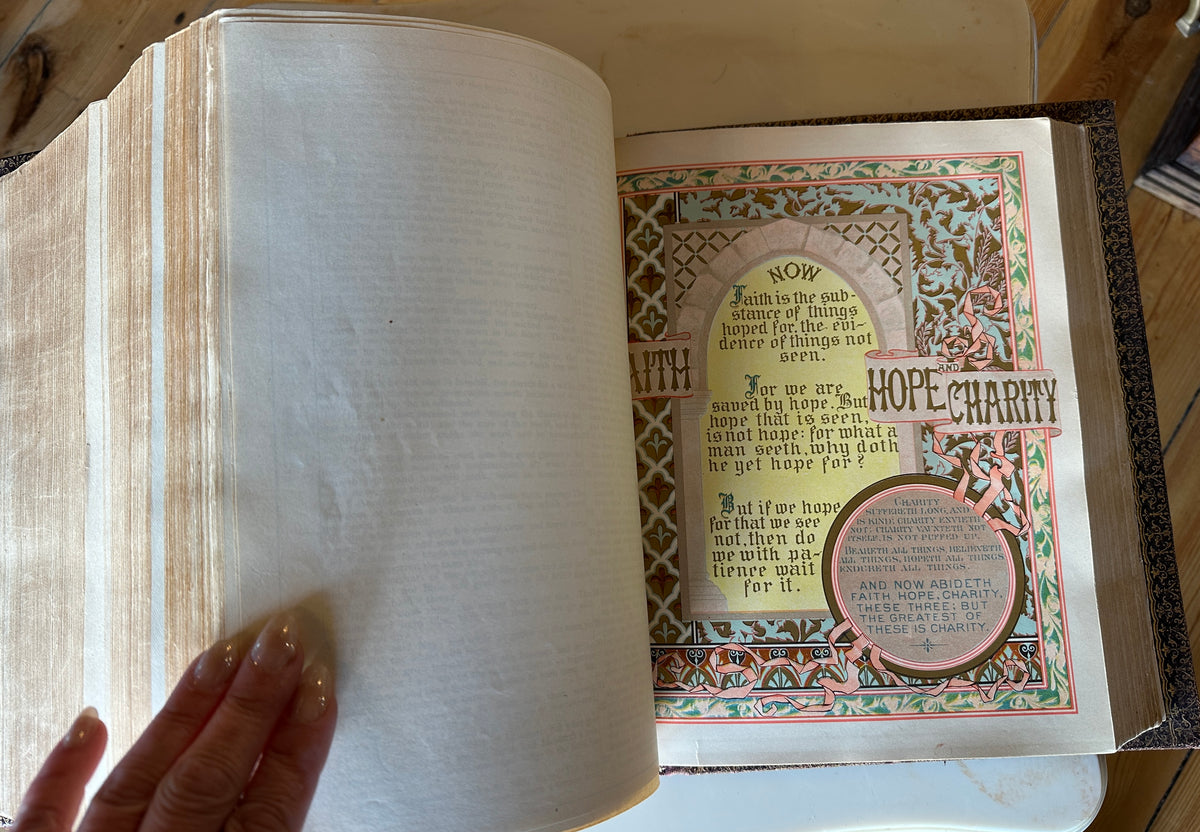 NOW
Faith is the sub-
stance of things
hoped for, the evi-
dence of things not
seen.
For we are
saved by hope. But
hope that is seen,
is not hope: for what a
man seeth, why doth
he yet hope for?
But if we hope
for that we see
not, then do
we with pa-
tience wait
for it.
AITH
HOPE AND CHARITY
CHARITY
SUFFERETH LONG, AND
IS KIND: CHARITY ENVIETH
NOT: CHARITY VAUNTETH NOT
ITSELF, IS NOT PUFFED UP.
BEARETH ALL THINGS, BELIEVETH
ALL THINGS, HOPETH ALL THINGS
ENDURETH ALL THINGS.
AND NOW ABIDETH
FAITH, HOPE, CHARITY,
THESE THREE; BUT
THE GREATEST OF
THESE IS CHARITY.